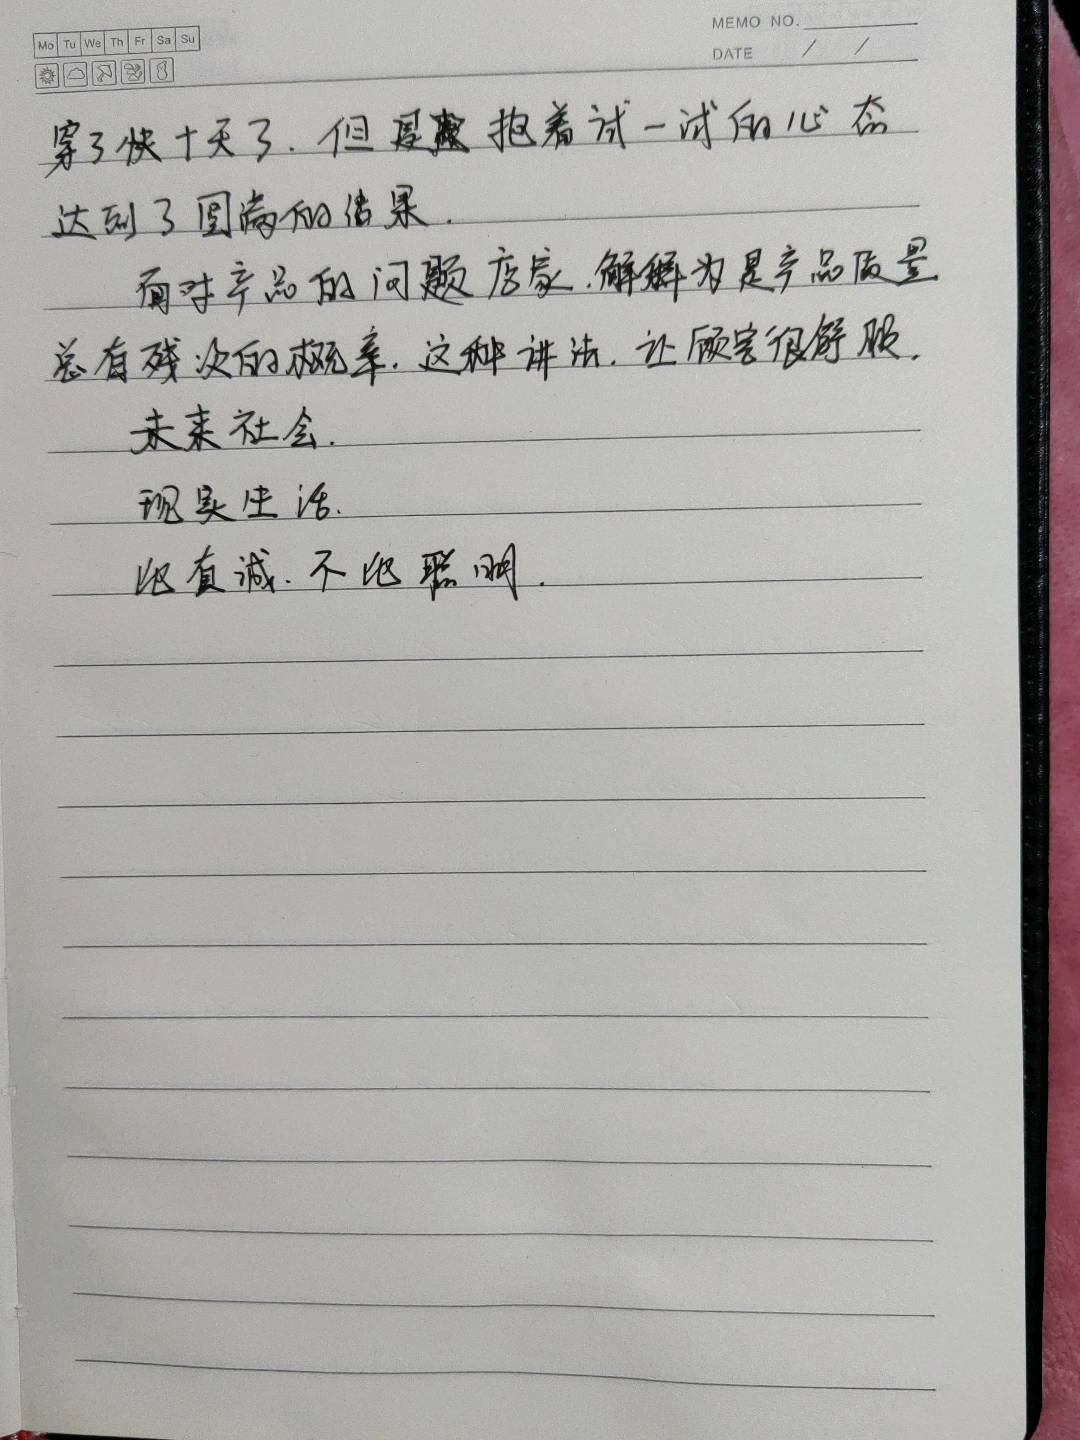 Mo Tu We Th Fr Sa Su
MEMO NO.
DATE / /
穿了快十天了.但 抱着试一试的心态
达到了圆满的结果.
面对产品的问题店家.解释为是产品质量
总有残次的概率.这种讲法.让顾客很舒服.
未来社会.
现实生活.
比真诚.不比聪明.